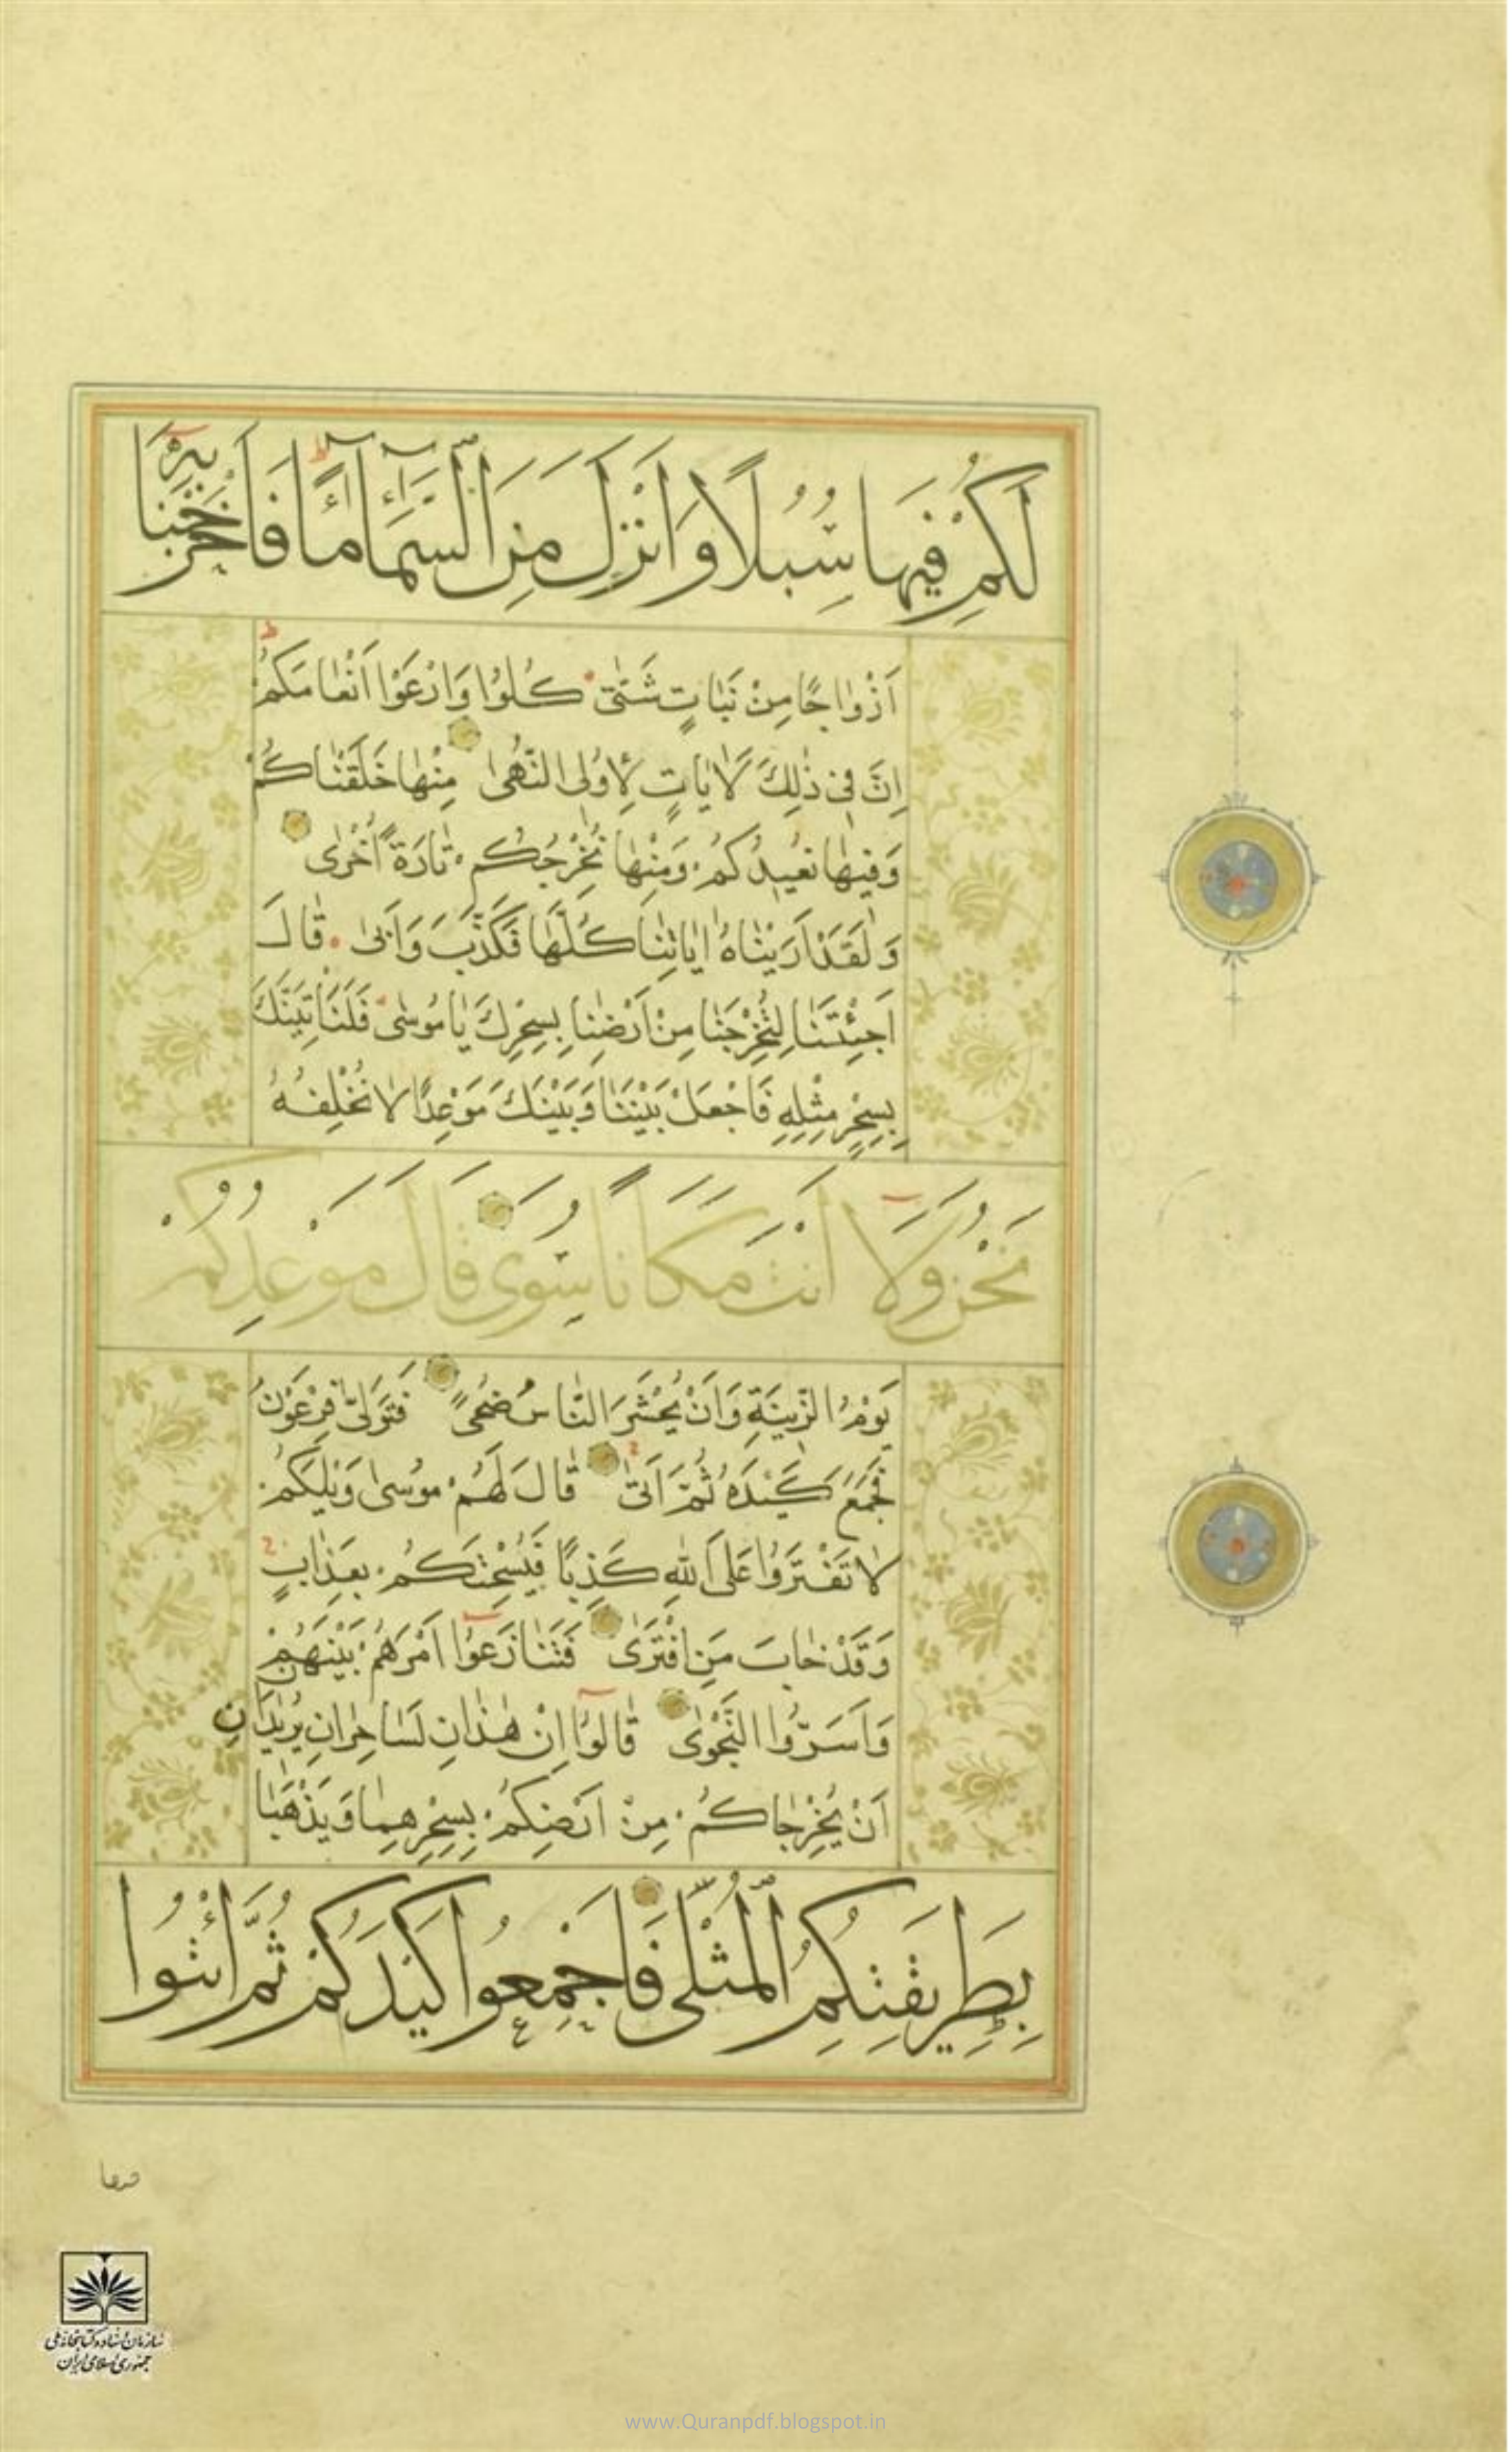 لَكُمْ فِيهَا سُبُلًا وَاَنْزَلَ مِنَ السَّمَآءِ مَآءً فَاَخْرَجْنَا بِهٖٓ
اَزْوَاجًا مِنْ نَبَاتٍ شَتّٰى كُلُوْا وَارْعَوْا اَنْعَامَكُمْ
اِنَّ فِى ذٰلِكَ لَاٰيَاتٍ لِاُولِى النُّهٰى مِنْهَا خَلَقْنَاكُمْ
وَفِيهَا نُعِيدُكُمْ وَمِنْهَا نُخْرِجُكُمْ تَارَةً اُخْرٰى
وَلَقَدْ اَرَيْنَاهُ اٰيَاتِنَا كُلَّهَا فَكَذَّبَ وَاَبٰى قَالَ
اَجِئْتَنَا لِتُخْرِجَنَا مِنْ اَرْضِنَا بِسِحْرِكَ يَا مُوسٰى فَلَنَأْتِيَنَّكَ
بِسِحْرٍ مِثْلِهِ فَاجْعَلْ بَيْنَنَا وَبَيْنَكَ مَوْعِدًا لَا نُخْلِفُهُ
نَحْنُ وَلَآ اَنْتَ مَكَانًا سُوًى قَالَ مَوْعِدُكُمْ
يَوْمُ الزِّينَةِ وَاَنْ يُحْشَرَ النَّاسُ ضُحًى فَتَوَلّٰى فِرْعَوْنُ
فَجَمَعَ كَيْدَهُ ثُمَّ اَتٰى قَالَ لَهُمْ مُوسٰى وَيْلَكُمْ
لَا تَفْتَرُوْا عَلَى اللّٰهِ كَذِبًا فَيُسْحِتَكُمْ بِعَذَابٍ
وَقَدْ خَابَ مَنِ افْتَرٰى فَتَنَازَعُوْٓا اَمْرَهُمْ بَيْنَهُمْ
وَاَسَرُّوا النَّجْوٰى قَالُوْٓا اِنْ هٰذَانِ لَسَاحِرَانِ يُرِيدَانِ
اَنْ يُخْرِجَاكُمْ مِنْ اَرْضِكُمْ بِسِحْرِهِمَا وَيَذْهَبَا
بِطَرِيقَتِكُمُ الْمُثْلٰى فَاَجْمِعُوا كَيْدَكُمْ ثُمَّ ائْتُوا
سازمان اسناد و کتابخانه ملی
جمهوری اسلامی ایران
www.Quranpdf.blogspot.in